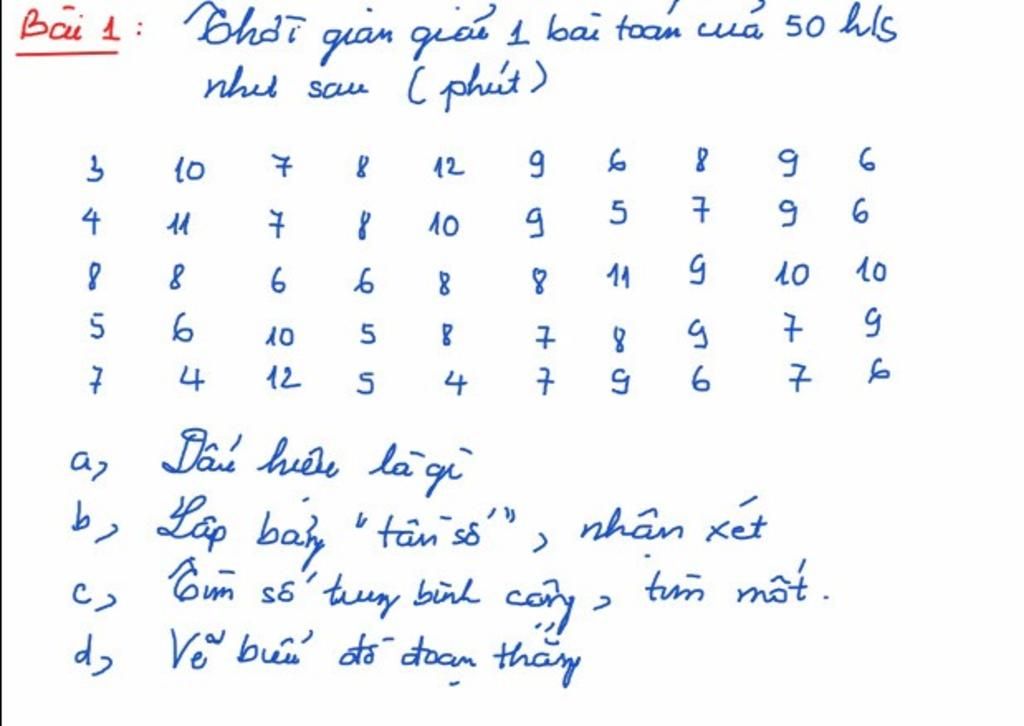 Bài 1 : Thời gian giải 1 bài toán của 50 h/s
như sau ( phút )
3 10 7 8 12 9 6 8 9 6
4 11 7 8 10 9 5 7 9 6
8 8 6 6 8 8 11 9 10 10
5 6 10 5 8 7 8 9 7 9
7 4 12 5 4 7 9 6 7 6
a, Dấu hiệu là gì
b, Lập bảng "tần số", nhận xét
c, Tìm số trung bình cộng, tìm mốt.
d, Vẽ biểu đồ đoạn thẳng